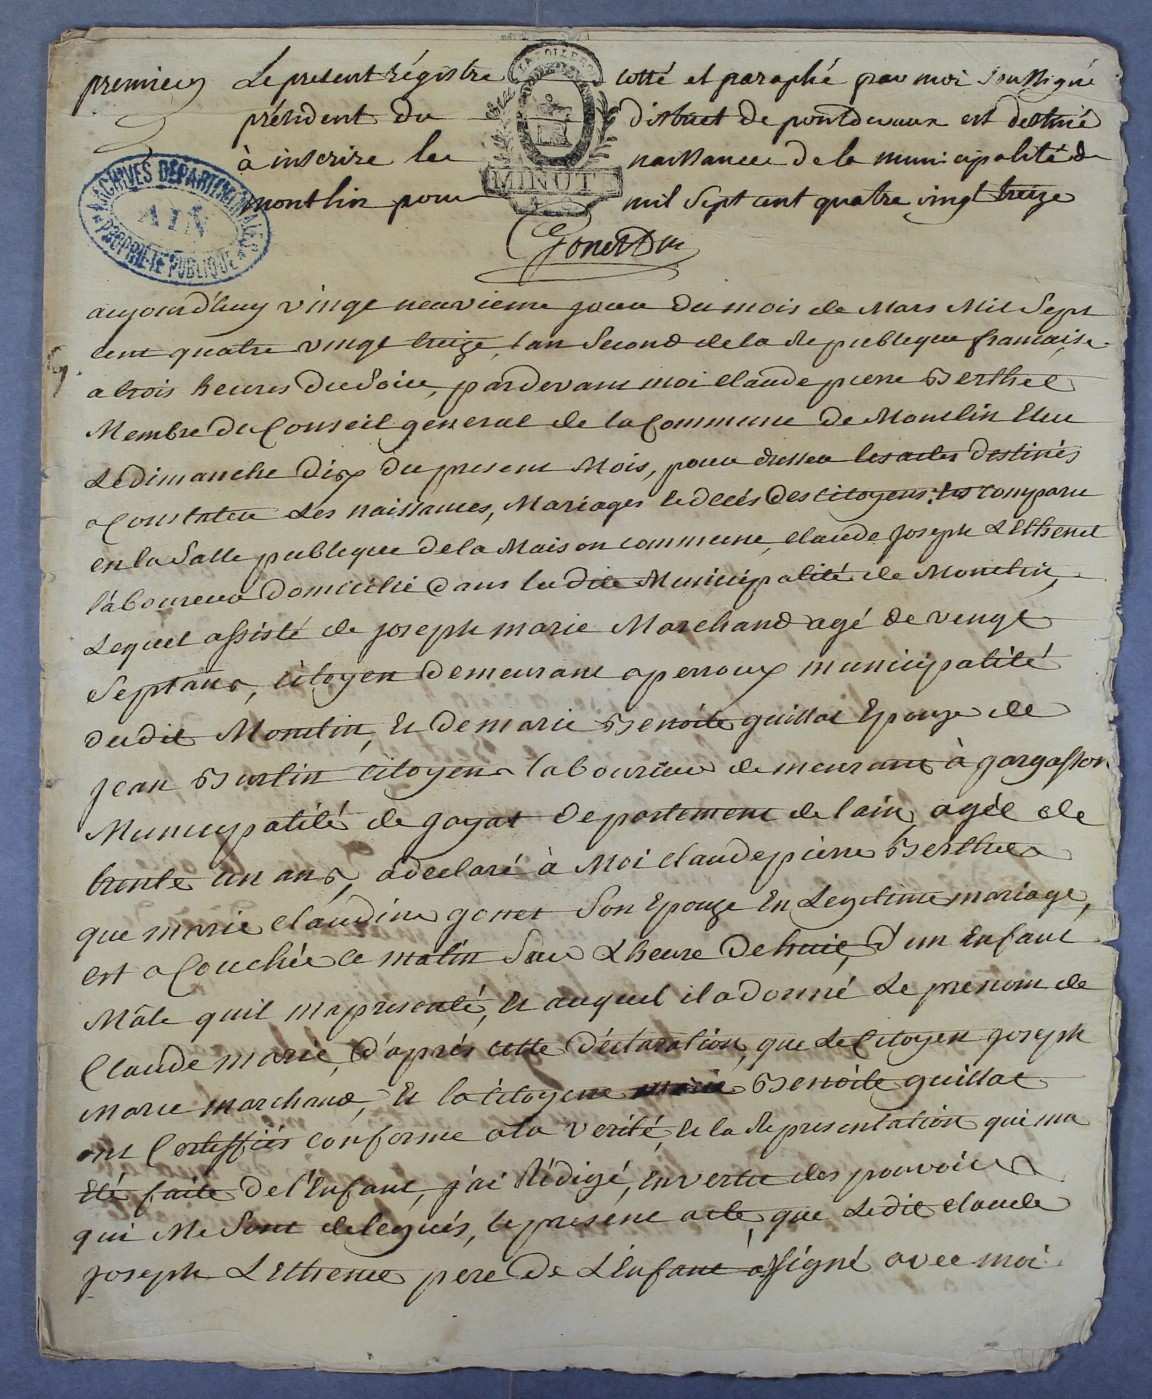 premier Le present régistre cotté et paraphé par moi soussigné
président du district de pontdevaux est destiné
à inscrire les naissances de la municipalité de
montlin pour mil sept cent quatre vingt treize
MINUTE
ARCHIVES DÉPARTEMENTALES
AIN
PROPRIÉTÉ PUBLIQUE
aujourd'huy vingt neuvieme jour du mois de Mars Mil Sept
cent quatre vingt treize, l'an Second de la Republique francaise
a trois heures du Soir, pardevant moi Claude pierre Berthet
Membre du Conseil general de la Commune de Montlin Elu
Le dimanche dix du present Mois, pour dresser les actes destinés
a Constater Les naissances, Mariages & décès des Citoyens; comparu
en la Salle publique de la Maison commune, claude Joseph
laboureur domicilié dans ladite Municipalité de Montlin,
Lequel assisté de joseph marie Marchand agé de vingt
Sept ans, Citoyen demeurant a perroux municipalité
dudit Montlin, Et de marie Benoite guillat Epouze de
jean Burtin Citoyen laboureur demeurant à gargasson
Municipalité de departement de lain, agée de
trente un ans, a declaré à Moi claude pierre Berthet
que marie claudine gonet Son Epouze En Legitime mariage,
est acouchée ce matin Sur L'heure de huit, d'un Enfant
Mâle quil ma presenté, Et auquel il a donné Le prenom de
Claude marie, d'après cette déclaration, que Le Citoyen joseph
Marie marchand, Et la Citoyene marie Benoite guillat
ont Certiffiés conforme a la verité, & la Representation qui ma
Eté faite de l'Enfant, j'ai Rédigé, En vertu des pouvoirs
qui Me Sont delegués, le present acte, que Ledit claude
joseph pere de L'Enfant a Signé avec moi